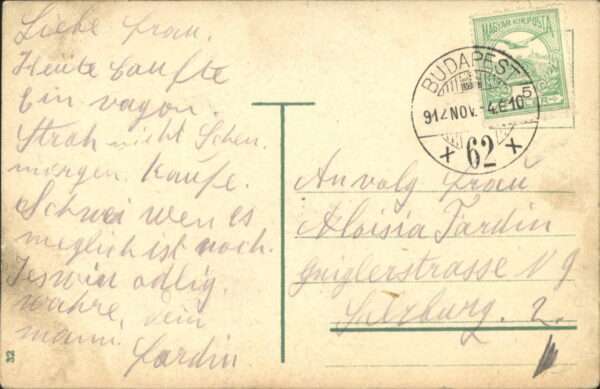 Liebe frau.
Heute Caufte
Ein vagon.
Stroh nicht Schen.
morgen. Kaufe.
Schwei wen es
meglich ist noch.
wahre, dein
mann.
Jardin
MAGYAR KIR. POSTA
BUDAPEST
912 NOV. -4.E 10
62
5
An volg frau
Aloisia Jardin
Gniglerstrasse N 9
Salzburg. 2.
32